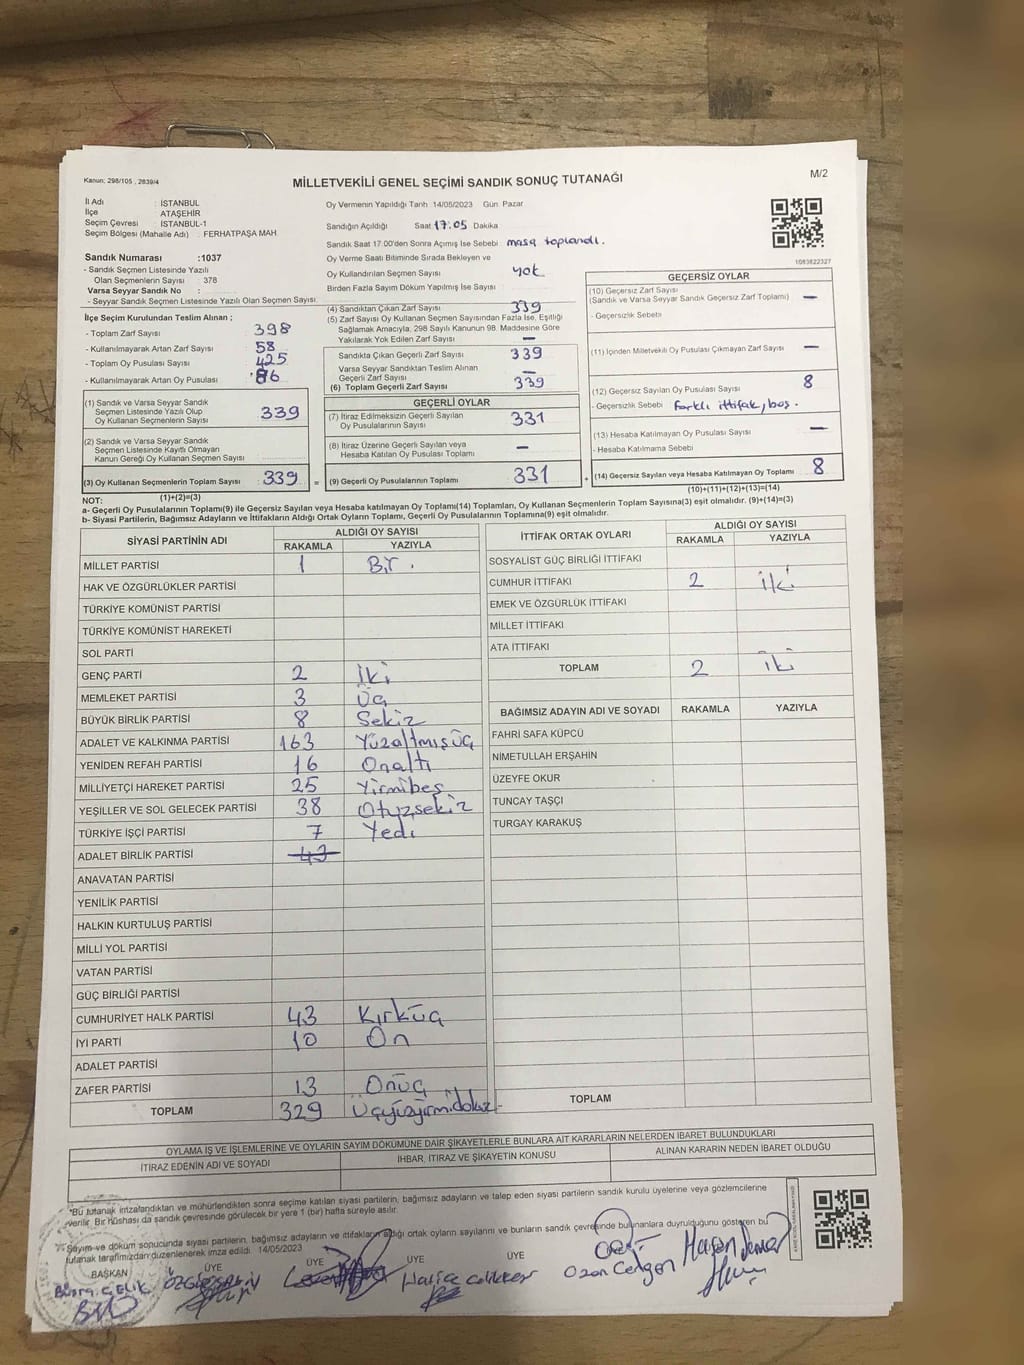 Kanun: 298/105 , 2839/4
MİLLETVEKİLİ GENEL SEÇİMİ SANDIK SONUÇ TUTANAĞI
M/2
İl Adı : İSTANBUL
İlçe : ATAŞEHİR
Seçim Çevresi : İSTANBUL-1
Seçim Bölgesi (Mahalle Adı) : FERHATPAŞA MAH.
Sandık Numarası :1037
- Sandık Seçmen Listesinde Yazılı
Olan Seçmenlerin Sayısı : 378
Varsa Seyyar Sandık No :
- Seyyar Sandık Seçmen Listesinde Yazılı Olan Seçmen Sayısı:
Oy Vermenin Yapıldığı Tarih 14/05/2023 Gün Pazar
Sandığın Açıldığı Saat 17:05 Dakika
Sandık Saat 17.00'den Sonra Açımış İse Sebebi masa toplandı.
Oy Verme Saati Bitiminde Sırada Bekleyen ve
Oy Kullandırılan Seçmen Sayısı yok
Birden Fazla Sayım Döküm Yapılmış İse Sayısı
1083822327
İlçe Seçim Kurulundan Teslim Alınan ;
- Toplam Zarf Sayısı 398
- Kullanılmayarak Artan Zarf Sayısı 58
- Toplam Oy Pusulası Sayısı 425
- Kullanılmayarak Artan Oy Pusulası 86
(1) Sandık ve Varsa Seyyar Sandık
Seçmen Listesinde Yazılı Olup
Oy Kullanan Seçmenlerin Sayısı 339
(2) Sandık ve Varsa Seyyar Sandık
Seçmen Listesinde Kayıtlı Olmayan
Kanun Gereği Oy Kullanan Seçmen Sayısı
(3) Oy Kullanan Seçmenlerin Toplam Sayısı 339 =
(1)+(2)=(3)
(4) Sandıktan Çıkan Zarf Sayısı 339
(5) Zarf Sayısı Oy Kullanan Seçmen Sayısından Fazla İse, Eşitliği
Sağlamak Amacıyla, 298 Sayılı Kanunun 98. Maddesine Göre
Yakılarak Yok Edilen Zarf Sayısı —
Sandıkta Çıkan Geçerli Zarf Sayısı 339
Varsa Seyyar Sandıktan Teslim Alınan
Geçerli Zarf Sayısı —
(6) Toplam Geçerli Zarf Sayısı 339
GEÇERLİ OYLAR
(7) İtiraz Edilmeksizin Geçerli Sayılan
Oy Pusulalarının Sayısı 331
(8) İtiraz Üzerine Geçerli Sayılan veya
Hesaba Katılan Oy Pusulası Toplamı —
(9) Geçerli Oy Pusulalarının Toplamı 331 +
GEÇERSİZ OYLAR
(10) Geçersiz Zarf Sayısı
(Sandık ve Varsa Seyyar Sandık Geçersiz Zarf Toplamı) —
- Geçersizlik Sebebi
(11) İçinden Milletvekili Oy Pusulası Çıkmayan Zarf Sayısı —
(12) Geçersiz Sayılan Oy Pusulası Sayısı 8
- Geçersizlik Sebebi farklı ittifak, boş.
(13) Hesaba Katılmayan Oy Pusulası Sayısı —
- Hesaba Katılmama Sebebi
(14) Geçersiz Sayılan veya Hesaba Katılmayan Oy Toplamı 8
(10)+(11)+(12)+(13)=(14)
NOT:
a- Geçerli Oy Pusulalarının Toplamı(9) ile Geçersiz Sayılan veya Hesaba katılmayan Oy Toplamı(14) Toplamları, Oy Kullanan Seçmenlerin Toplam Sayısına(3) eşit olmalıdır. (9)+(14)=(3)
b- Siyasi Partilerin, Bağımsız Adayların ve İttifakların Aldığı Ortak Oyların Toplamı, Geçerli Oy Pusulalarının Toplamına(9) eşit olmalıdır.
SİYASİ PARTİNİN ADI ALDIĞI OY SAYISI
RAKAMLA YAZIYLA
MİLLET PARTİSİ 1 Bir.
HAK VE ÖZGÜRLÜKLER PARTİSİ
TÜRKİYE KOMÜNİST PARTİSİ
TÜRKİYE KOMÜNİST HAREKETİ
SOL PARTİ
GENÇ PARTİ 2 İki
MEMLEKET PARTİSİ 3 Üç
BÜYÜK BİRLİK PARTİSİ 8 Sekiz
ADALET VE KALKINMA PARTİSİ 163 Yüzaltmışüç
YENİDEN REFAH PARTİSİ 16 Onaltı
MİLLİYETÇİ HAREKET PARTİSİ 25 Yirmibeş
YEŞİLLER VE SOL GELECEK PARTİSİ 38 Otuzsekiz
TÜRKİYE İŞÇİ PARTİSİ 7 Yedi
ADALET BİRLİK PARTİSİ 43
ANAVATAN PARTİSİ
YENİLİK PARTİSİ
HALKIN KURTULUŞ PARTİSİ
MİLLİ YOL PARTİSİ
VATAN PARTİSİ
GÜÇ BİRLİĞİ PARTİSİ
CUMHURİYET HALK PARTİSİ 43 Kırküç
İYİ PARTİ 10 On
ADALET PARTİSİ
ZAFER PARTİSİ 13 Onüç
TOPLAM 329 Üçyüzyirmidokuz
İTTİFAK ORTAK OYLARI ALDIĞI OY SAYISI
RAKAMLA YAZIYLA
SOSYALİST GÜÇ BİRLİĞİ İTTİFAKI
CUMHUR İTTİFAKI 2 iki
EMEK VE ÖZGÜRLÜK İTTİFAKI
MİLLET İTTİFAKI
ATA İTTİFAKI
TOPLAM 2 iki
BAĞIMSIZ ADAYIN ADI VE SOYADI RAKAMLA YAZIYLA
FAHRİ SAFA KÜPCÜ
NİMETULLAH ERŞAHİN
ÜZEYFE OKUR
TUNCAY TAŞÇI
TURGAY KARAKUŞ
TOPLAM
OYLAMA İŞ VE İŞLEMLERİNE VE OYLARIN SAYIM DÖKÜMÜNE DAİR ŞİKAYETLERLE BUNLARA AİT KARARLARIN NELERDEN İBARET BULUNDUKLARI
İTİRAZ EDENİN ADI VE SOYADI İHBAR, İTİRAZ VE ŞİKAYETİN KONUSU ALINAN KARARIN NEDEN İBARET OLDUĞU
*Bu tutanak imzalandıktan ve mühürlendikten sonra seçime katılan siyasi partilerin, bağımsız adayların ve talep eden siyasi partilerin sandık kurulu üyelerine veya gözlemcilerine
verilir. Bir nüshası da sandık çevresinde görülecek bir yere 1 (bir) hafta süreyle asılır.
Sayım ve döküm sonucunda siyasi partilerin, bağımsız adayların ve ittifakların aldığı ortak oyların sayılarını ve bunların sandık çevresinde bulunanlara duyrulduğunu gösteren bu
tutanak tarafımızdan düzenlenerek imza edildi. 14/05/2023
BAŞKAN ÜYE ÜYE ÜYE ÜYE
ÇELİK Ozan Hasan